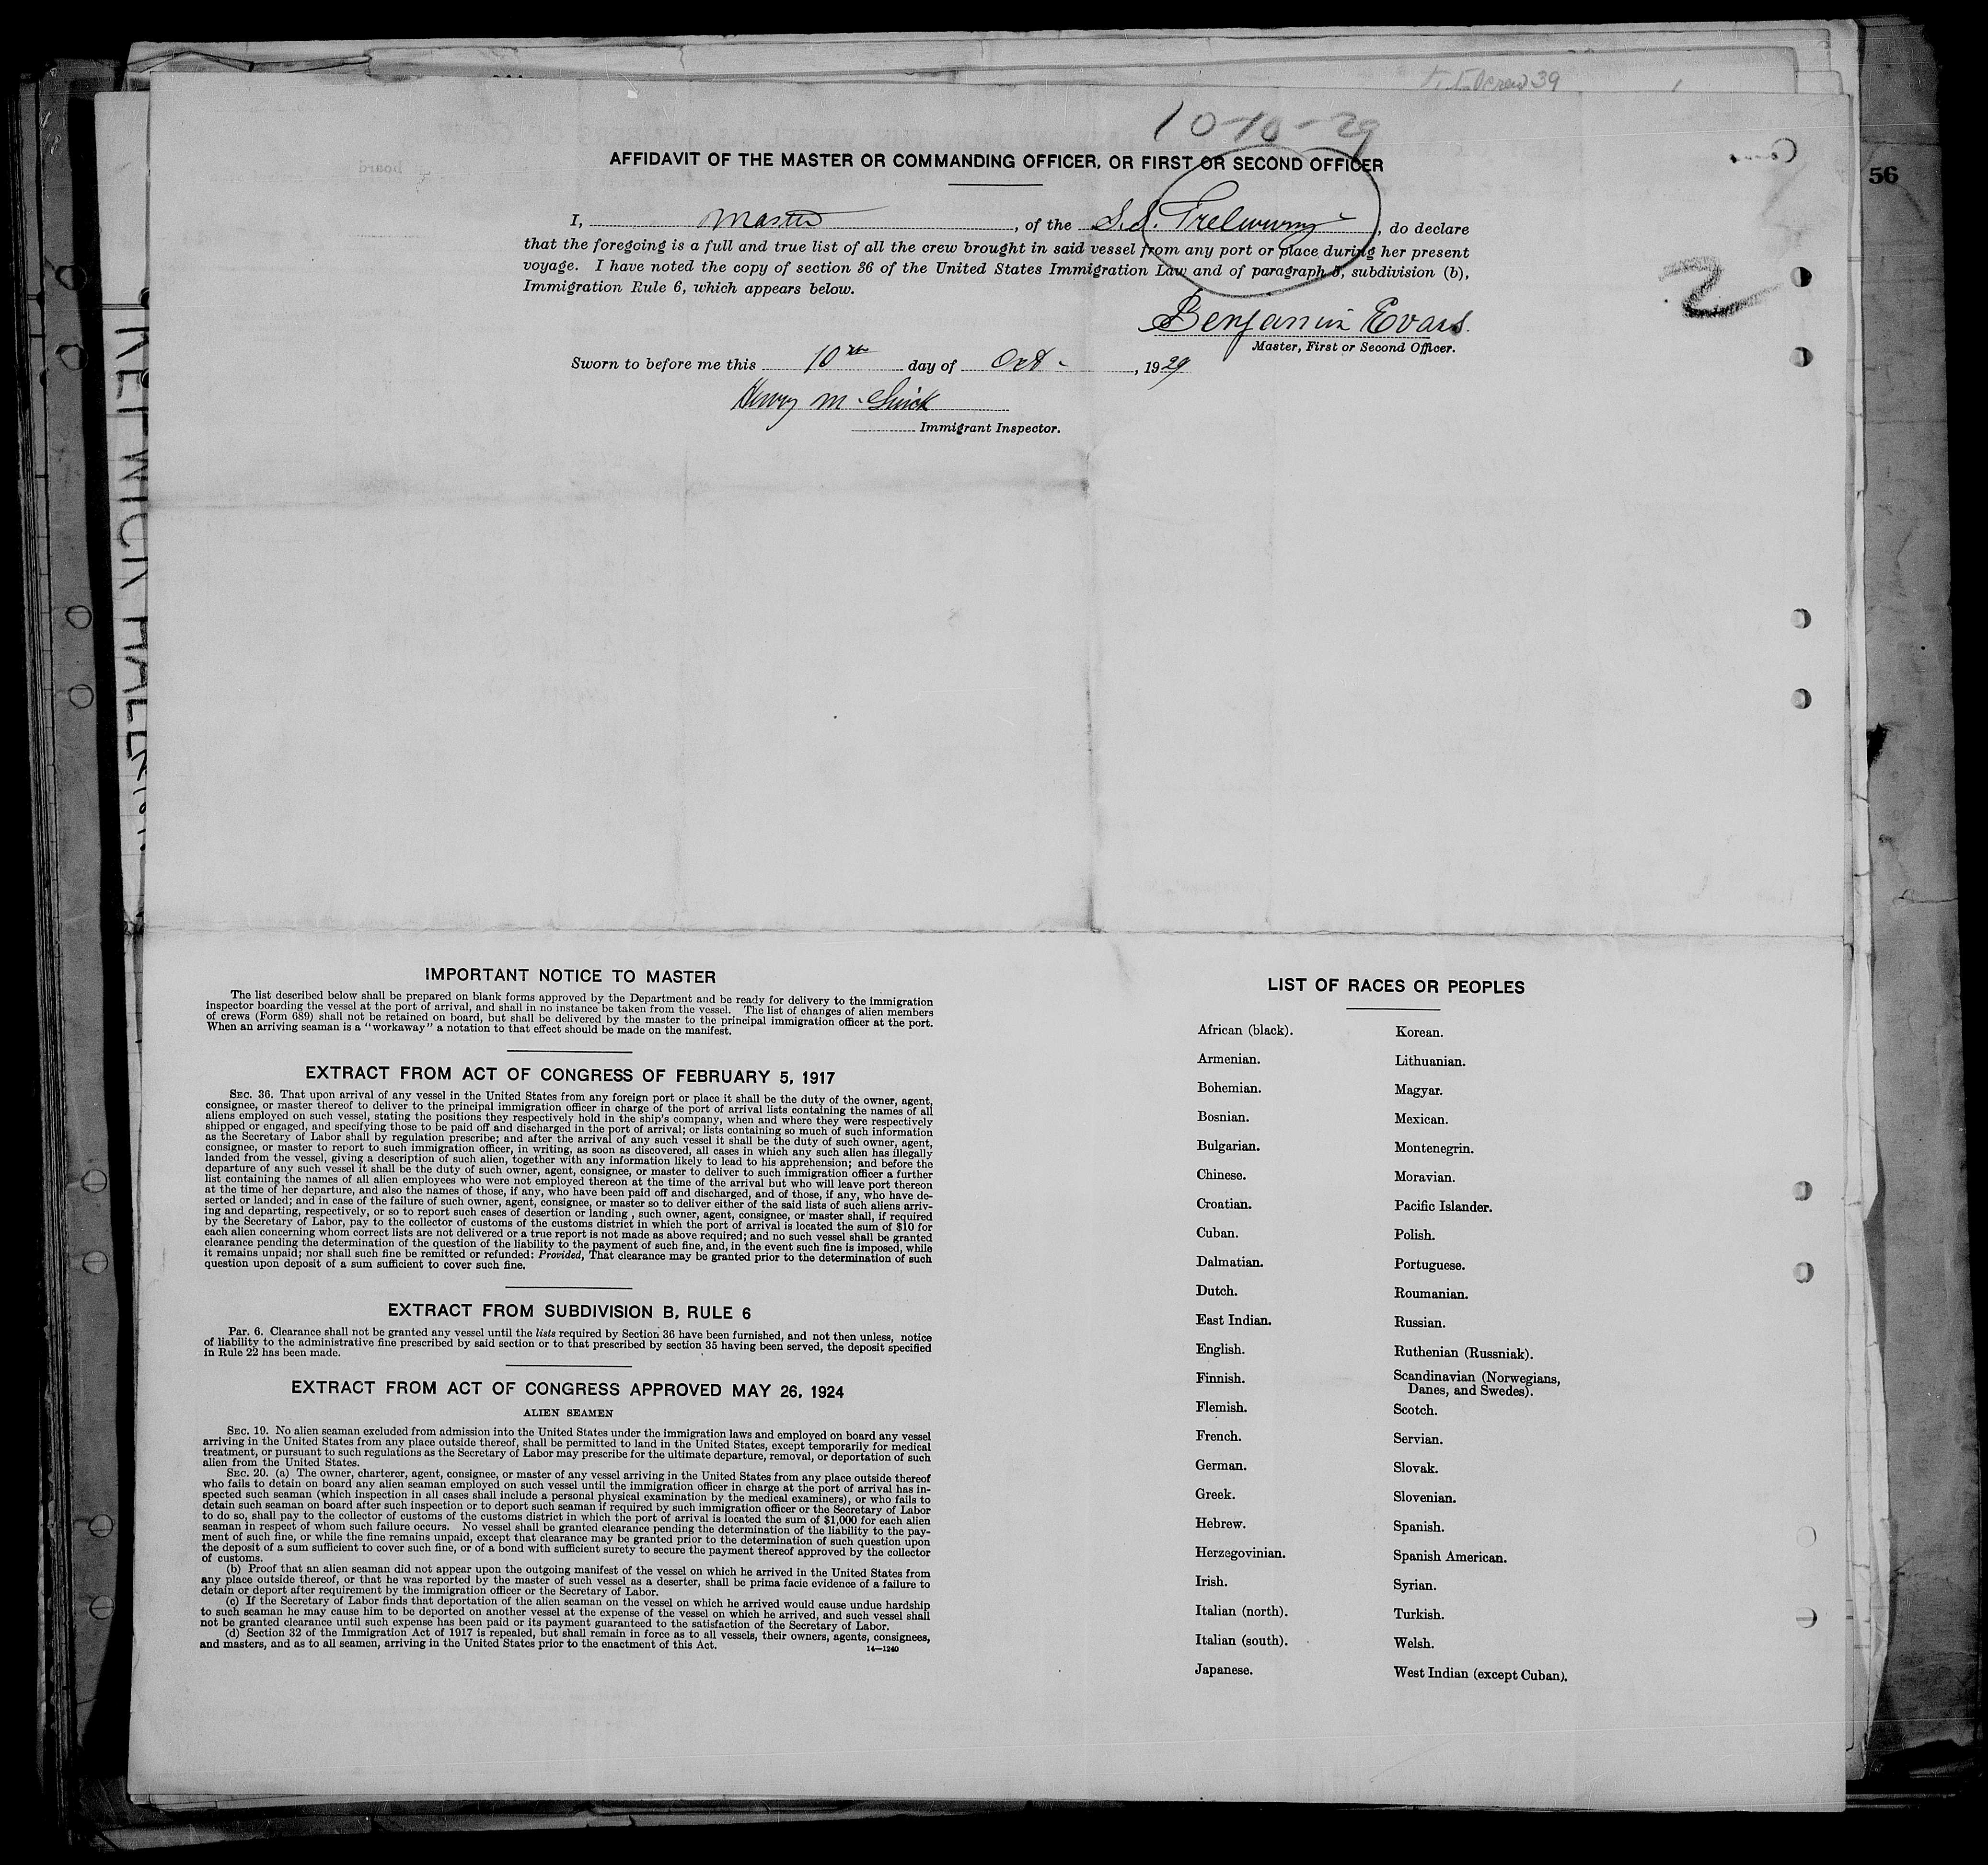 10-10-29
AFFIDAVIT OF THE MASTER OR COMMANDING OFFICER, OR FIRST OR SECOND OFFICER
56
I, Master, of the S.S. , do declare
that the foregoing is a full and true list of all the crew brought in said vessel from any port or place during her present
voyage. I have noted the copy of section 36 of the United States Immigration Law and of paragraph 5, subdivision (b),
Immigration Rule 6, which appears below.
2
Benjamin Evans.
Master, First or Second Officer.
Sworn to before me this 10th day of Oct - , 1929
Henry M.
Immigrant Inspector.
IMPORTANT NOTICE TO MASTER
The list described below shall be prepared on blank forms approved by the Department and be ready for delivery to the immigration
inspector boarding the vessel at the port of arrival, and shall in no instance be taken from the vessel. The list of changes of alien members
of crews (Form 689) shall not be retained on board, but shall be delivered by the master to the principal immigration officer at the port.
When an arriving seaman is a "workaway" a notation to that effect should be made on the manifest.
EXTRACT FROM ACT OF CONGRESS OF FEBRUARY 5, 1917
SEC. 36. That upon arrival of any vessel in the United States from any foreign port or place it shall be the duty of the owner, agent,
consignee, or master thereof to deliver to the principal immigration officer in charge of the port of arrival lists containing the names of all
aliens employed on such vessel, stating the positions they respectively hold in the ship's company, when and where they were respectively
shipped or engaged, and specifying those to be paid off and discharged in the port of arrival; or lists containing so much of such information
as the Secretary of Labor shall by regulation prescribe; and after the arrival of any such vessel it shall be the duty of such owner, agent,
consignee, or master to report to such immigration officer, in writing, as soon as discovered, all cases in which any such alien has illegally
landed from the vessel, giving a description of such alien, together with any information likely to lead to his apprehension; and before the
departure of any such vessel it shall be the duty of such owner, agent, consignee, or master to deliver to such immigration officer a further
list containing the names of all alien employees who were not employed thereon at the time of the arrival but who will leave port thereon
at the time of her departure, and also the names of those, if any, who have been paid off and discharged, and of those, if any, who have de-
serted or landed; and in case of the failure of such owner, agent, consignee, or master so to deliver either of the said lists of such aliens arriv-
ing and departing, respectively, or so to report such cases of desertion or landing , such owner, agent, consignee, or master shall, if required
by the Secretary of Labor, pay to the collector of customs of the customs district in which the port of arrival is located the sum of $10 for
each alien concerning whom correct lists are not delivered or a true report is not made as above required; and no such vessel shall be granted
clearance pending the determination of the question of the liability to the payment of such fine, and, in the event such fine is imposed, while
it remains unpaid; nor shall such fine be remitted or refunded: Provided, That clearance may be granted prior to the determination of such
question upon deposit of a sum sufficient to cover such fine.
EXTRACT FROM SUBDIVISION B, RULE 6
Par. 6. Clearance shall not be granted any vessel until the lists required by Section 36 have been furnished, and not then unless, notice
of liability to the administrative fine prescribed by said section or to that prescribed by section 35 having been served, the deposit specified
in Rule 22 has been made.
EXTRACT FROM ACT OF CONGRESS APPROVED MAY 26, 1924
ALIEN SEAMEN
SEC. 19. No alien seaman excluded from admission into the United States under the immigration laws and employed on board any vessel
arriving in the United States from any place outside thereof, shall be permitted to land in the United States, except temporarily for medical
treatment, or pursuant to such regulations as the Secretary of Labor may prescribe for the ultimate departure, removal, or deportation of such
alien from the United States.
SEC. 20. (a) The owner, charterer, agent, consignee, or master of any vessel arriving in the United States from any place outside thereof
who fails to detain on board any alien seaman employed on such vessel until the immigration officer in charge at the port of arrival has in-
spected such seaman (which inspection in all cases shall include a personal physical examination by the medical examiners), or who fails to
detain such seaman on board after such inspection or to deport such seaman if required by such immigration officer or the Secretary of Labor
to do so, shall pay to the collector of customs of the customs district in which the port of arrival is located the sum of $1,000 for each alien
seaman in respect of whom such failure occurs. No vessel shall be granted clearance pending the determination of the liability to the pay-
ment of such fine, or while the fine remains unpaid, except that clearance may be granted prior to the determination of such question upon
the deposit of a sum sufficient to cover such fine, or of a bond with sufficient surety to secure the payment thereof approved by the collector
of customs.
(b) Proof that an alien seaman did not appear upon the outgoing manifest of the vessel on which he arrived in the United States from
any place outside thereof, or that he was reported by the master of such vessel as a deserter, shall be prima facie evidence of a failure to
detain or deport after requirement by the immigration officer or the Secretary of Labor.
(c) If the Secretary of Labor finds that deportation of the alien seaman on the vessel on which he arrived would cause undue hardship
to such seaman he may cause him to be deported on another vessel at the expense of the vessel on which he arrived, and such vessel shall
not be granted clearance until such expense has been paid or its payment guaranteed to the satisfaction of the Secretary of Labor.
(d) Section 32 of the Immigration Act of 1917 is repealed, but shall remain in force as to all vessels, their owners, agents, consignees,
and masters, and as to all seamen, arriving in the United States prior to the enactment of this Act.
14—1240
LIST OF RACES OR PEOPLES
African (black).
Armenian.
Bohemian.
Bosnian.
Bulgarian.
Chinese.
Croatian.
Cuban.
Dalmatian.
Dutch.
East Indian.
English.
Finnish.
Flemish.
French.
German.
Greek.
Hebrew.
Herzegovinian.
Irish.
Italian (north).
Italian (south).
Japanese.
Korean.
Lithuanian.
Magyar.
Mexican.
Montenegrin.
Moravian.
Pacific Islander.
Polish.
Portuguese.
Roumanian.
Russian.
Ruthenian (Russniak).
Scandinavian (Norwegians,
Danes, and Swedes).
Scotch.
Servian.
Slovak.
Slovenian.
Spanish.
Spanish American.
Syrian.
Turkish.
Welsh.
West Indian (except Cuban).